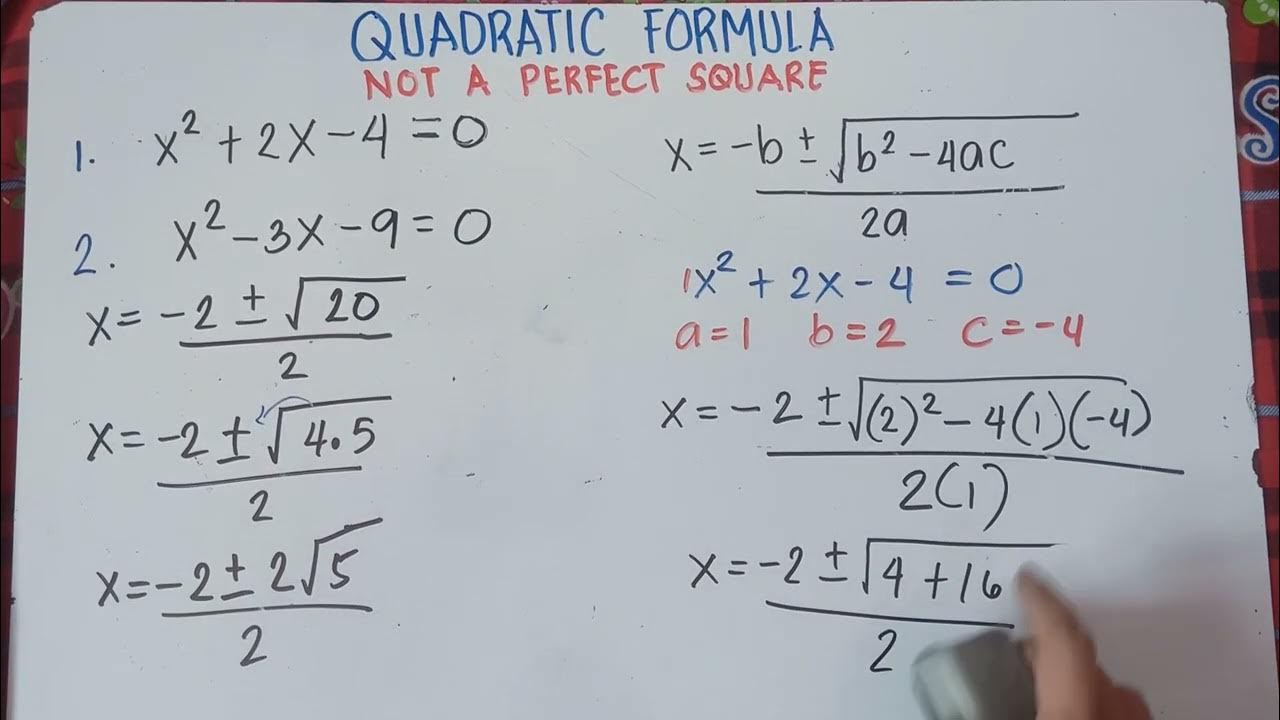 QUADRATIC FORMULA
NOT A PERFECT SQUARE
1. x² + 2x - 4 = 0
2. x² - 3x - 9 = 0
x = -2 ± √20
2
x = -2 ± √4·5
2
x = -2 ± 2√5
2
x = -b ± √b² - 4ac
2a
1x² + 2x - 4 = 0
a = 1 b = 2 c = -4
x = -2 ± √(2)² - 4(1)(-4)
2(1)
x = -2 ± √4 + 16
2
S